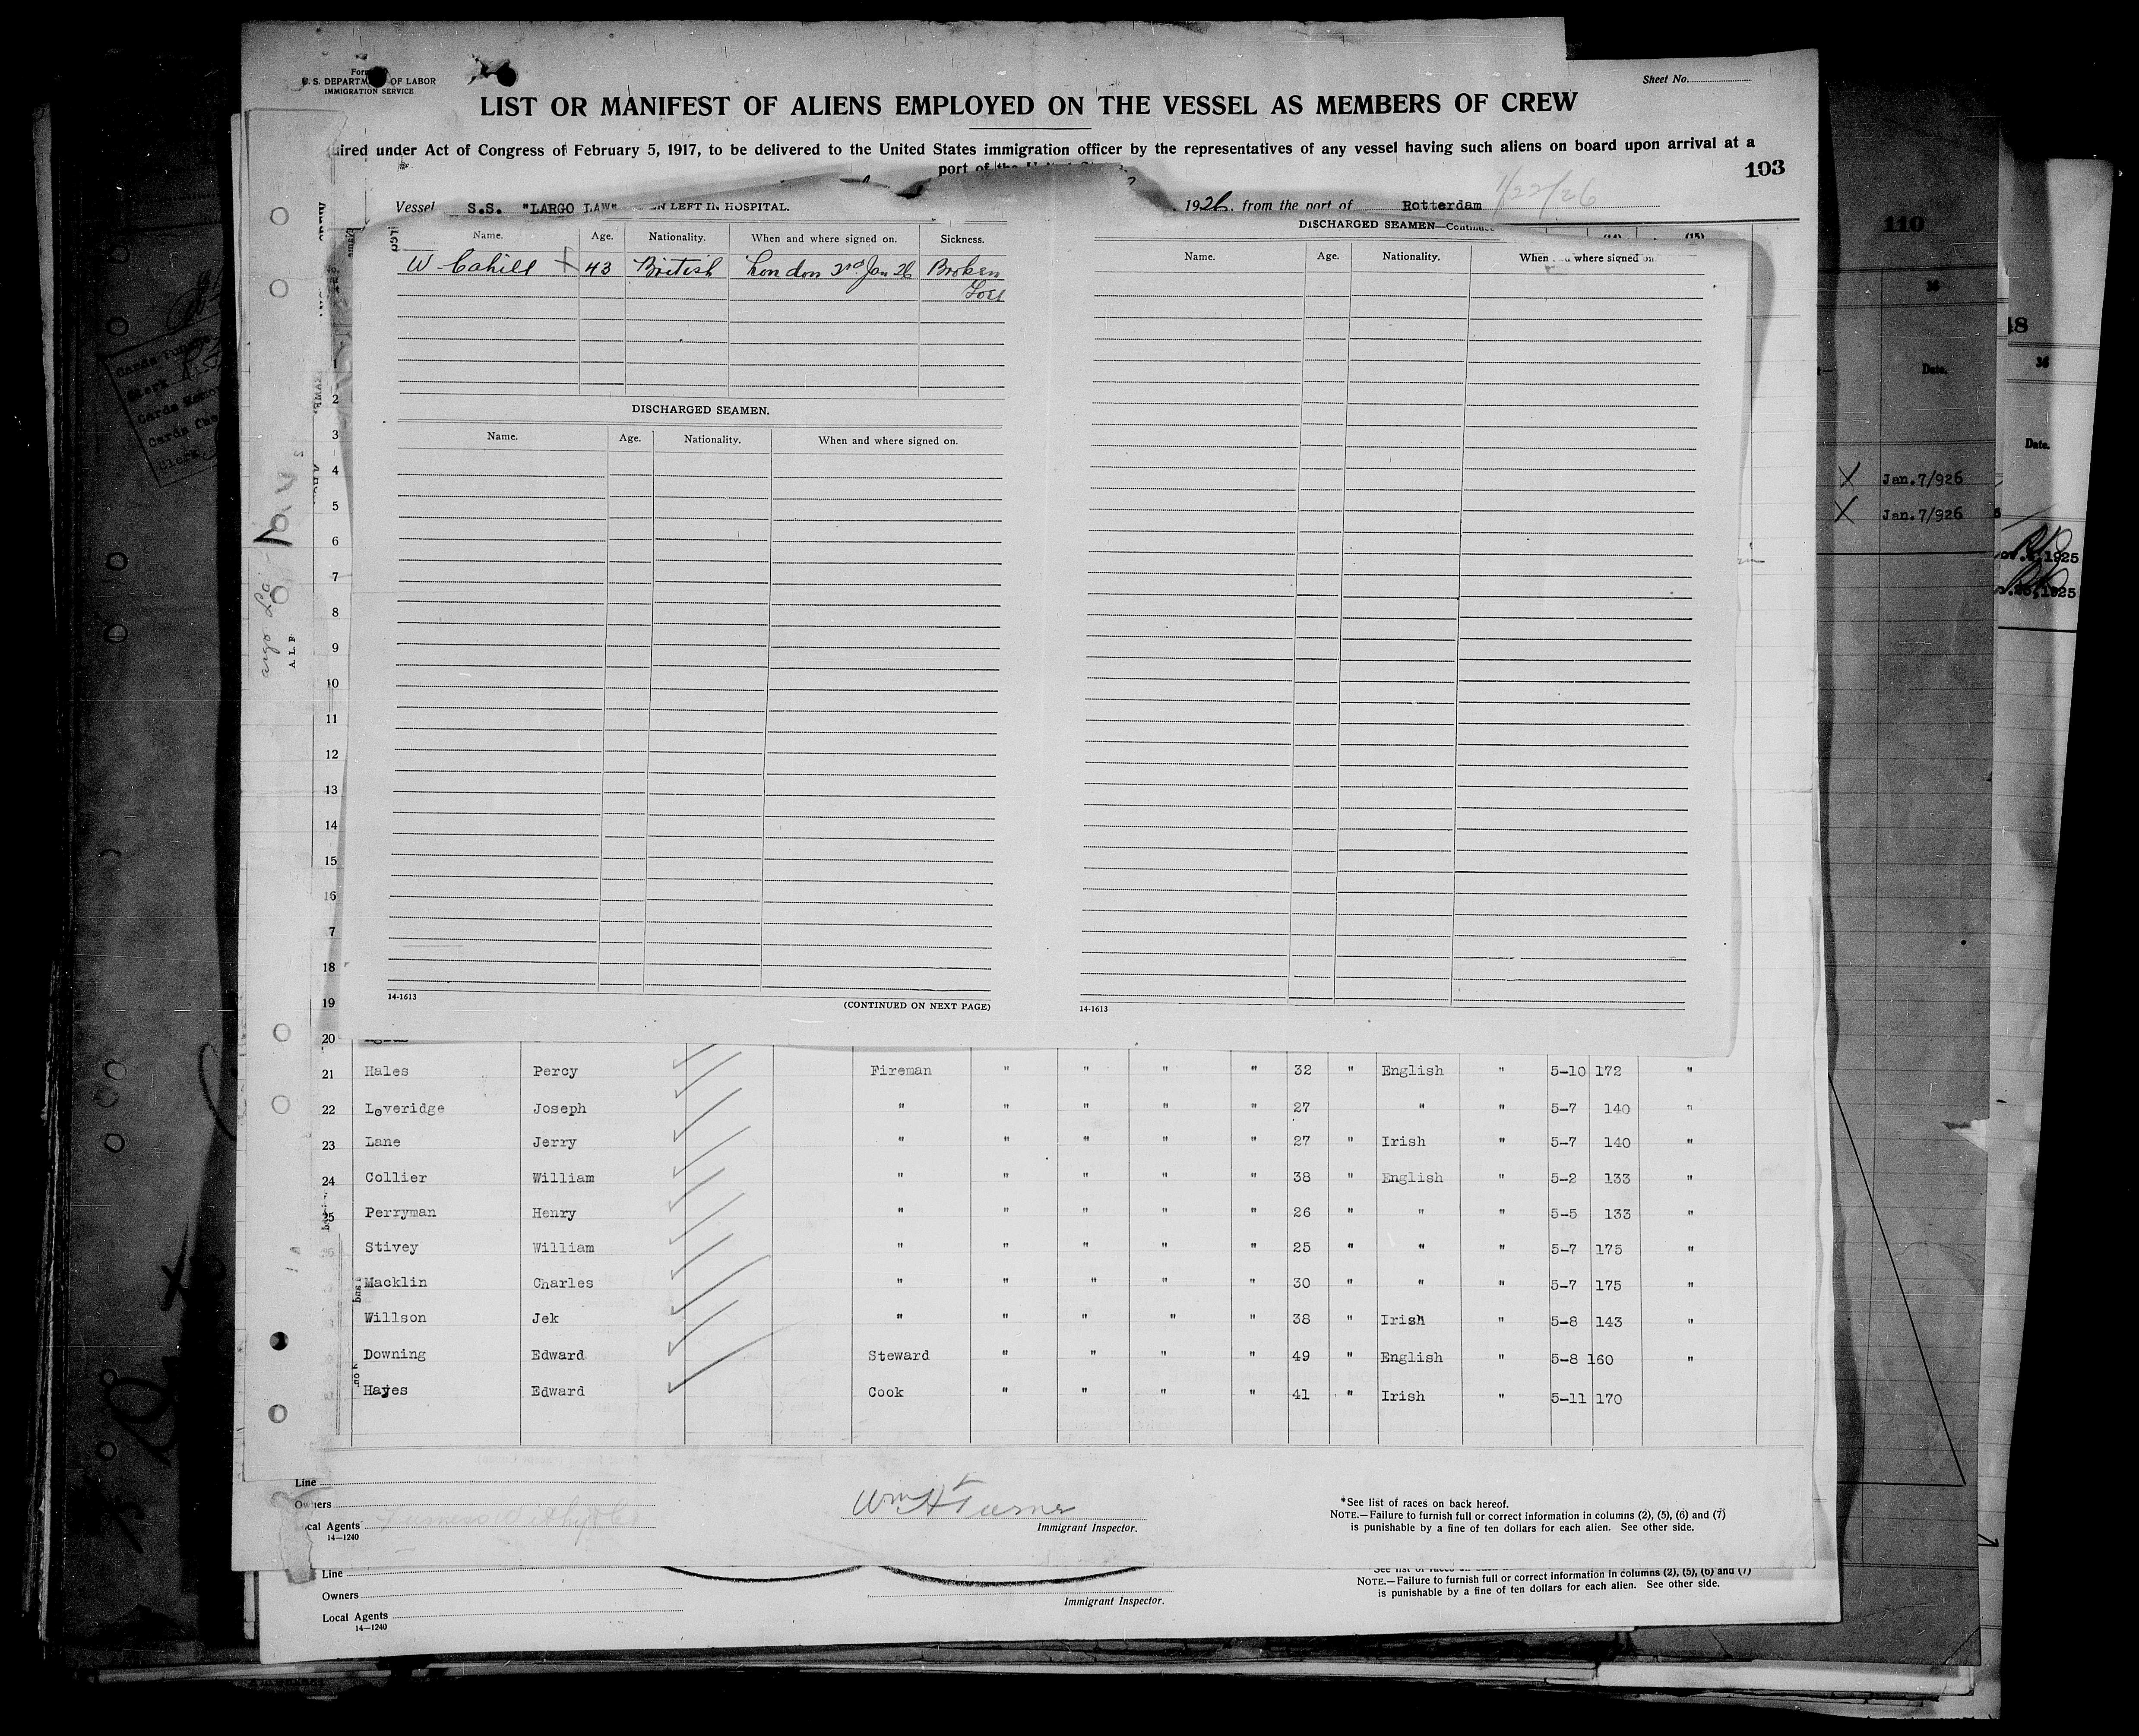 Form
U. S. DEPARTM OF LABOR
IMMIGRATION SERVICE
Sheet No.
LIST OR MANIFEST OF ALIENS EMPLOYED ON THE VESSEL AS MEMBERS OF CREW
uired under Act of Congress of February 5, 1917, to be delivered to the United States immigration officer by the representatives of any vessel having such aliens on board upon arrival at a
port of the United
103
1/22/26
Vessel S.S. "LARGO LAW" EN LEFT IN HOSPITAL. 1926, from the port of Rotterdam
Name. Age. Nationality. When and where signed on. Sickness.
W Cahill 43 British London 2nd Jan 26 Broken
Toes
DISCHARGED SEAMEN.
Name. Age. Nationality. When and where signed on.
14-1613
(CONTINUED ON NEXT PAGE)
DISCHARGED SEAMEN—Continue
(15)
Name. Age. Nationality. When and where signed on.
14-1613
1
2
3
4
5
6
7
8
9
10
11
12
13
14
15
16
7
18
19
20
21 Hales Percy Fireman " " " " 32 " English " 5-10 172 "
22 Loveridge Joseph " " " " " 27 " " 5-7 140 "
23 Lane Jerry " " " " " 27 " Irish " 5-7 140 "
24 Collier William " " " " " 38 " English " 5-2 133 "
25 Perryman Henry " " " " " 26 " " " 5-5 133 "
26 Stivey William " " " " " 25 " " " 5-7 175 "
Macklin Charles " " " " " 30 " " " 5-7 175 "
Willson Jek " " " " " 38 " Irish " 5-8 143 "
Downing Edward Steward " " " " 49 " English " 5-8 160 "
Hayes Edward Cook " " " " 41 " Irish " 5-11 170
Line
Owners
cal Agents
14—1240
Wm H Turner
Immigrant Inspector.
*See list of races on back hereof.
NOTE.—Failure to furnish full or correct information in columns (2), (5), (6) and (7)
is punishable by a fine of ten dollars for each alien. See other side.
Line
Owners
Local Agents
14—1240
Immigrant Inspector.
See list of races on
NOTE.—Failure to furnish full or correct information in columns (2), (5), (6) and (7)
is punishable by a fine of ten dollars for each alien. See other side.
110
36
Date.
Jan.7/926
Jan.7/926
18
36
Date.
1925
1925